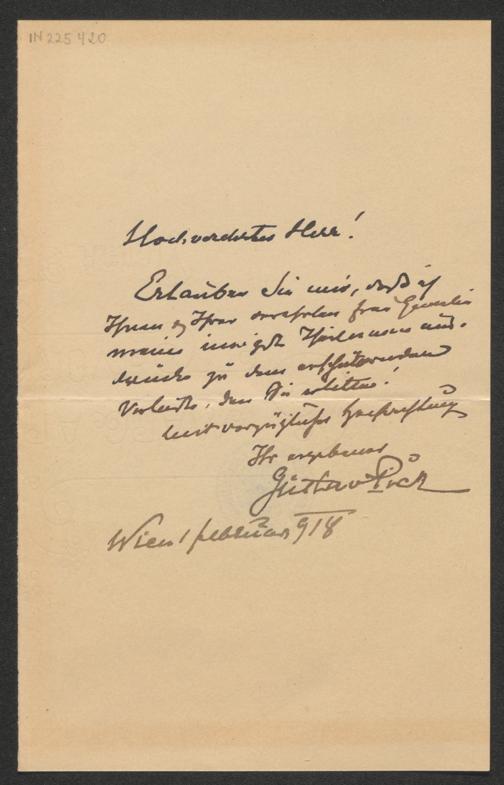 IN 225 420
Hochverehrter Herr!
Erlauben Sie mir, daß ich
Ihnen & Ihrer verehrten Frau Gemalin
meine innigste Theilnahme aus-
drücke zu dem erschütternden
Verluste, den Sie erlitten!
Mit vorzüglicher Hochachtung
Ihr ergebener
Gustav Pick
Wien 1 Februar 918